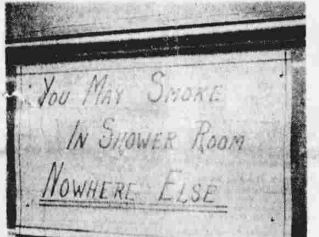 You May Smoke
In Shower Room
Nowhere Else